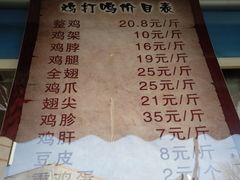 鸡打鸣价目表
整鸡 20.8元/斤
鸡架 10元/斤
鸡脖 16元/斤
鸡腿 19元/斤
全翅 25元/斤
鸡爪 25元/斤
翅尖 21元/斤
鸡胗 35元/斤
鸡肝 7元/斤
豆皮 8元/斤
鸡蛋 2元/个